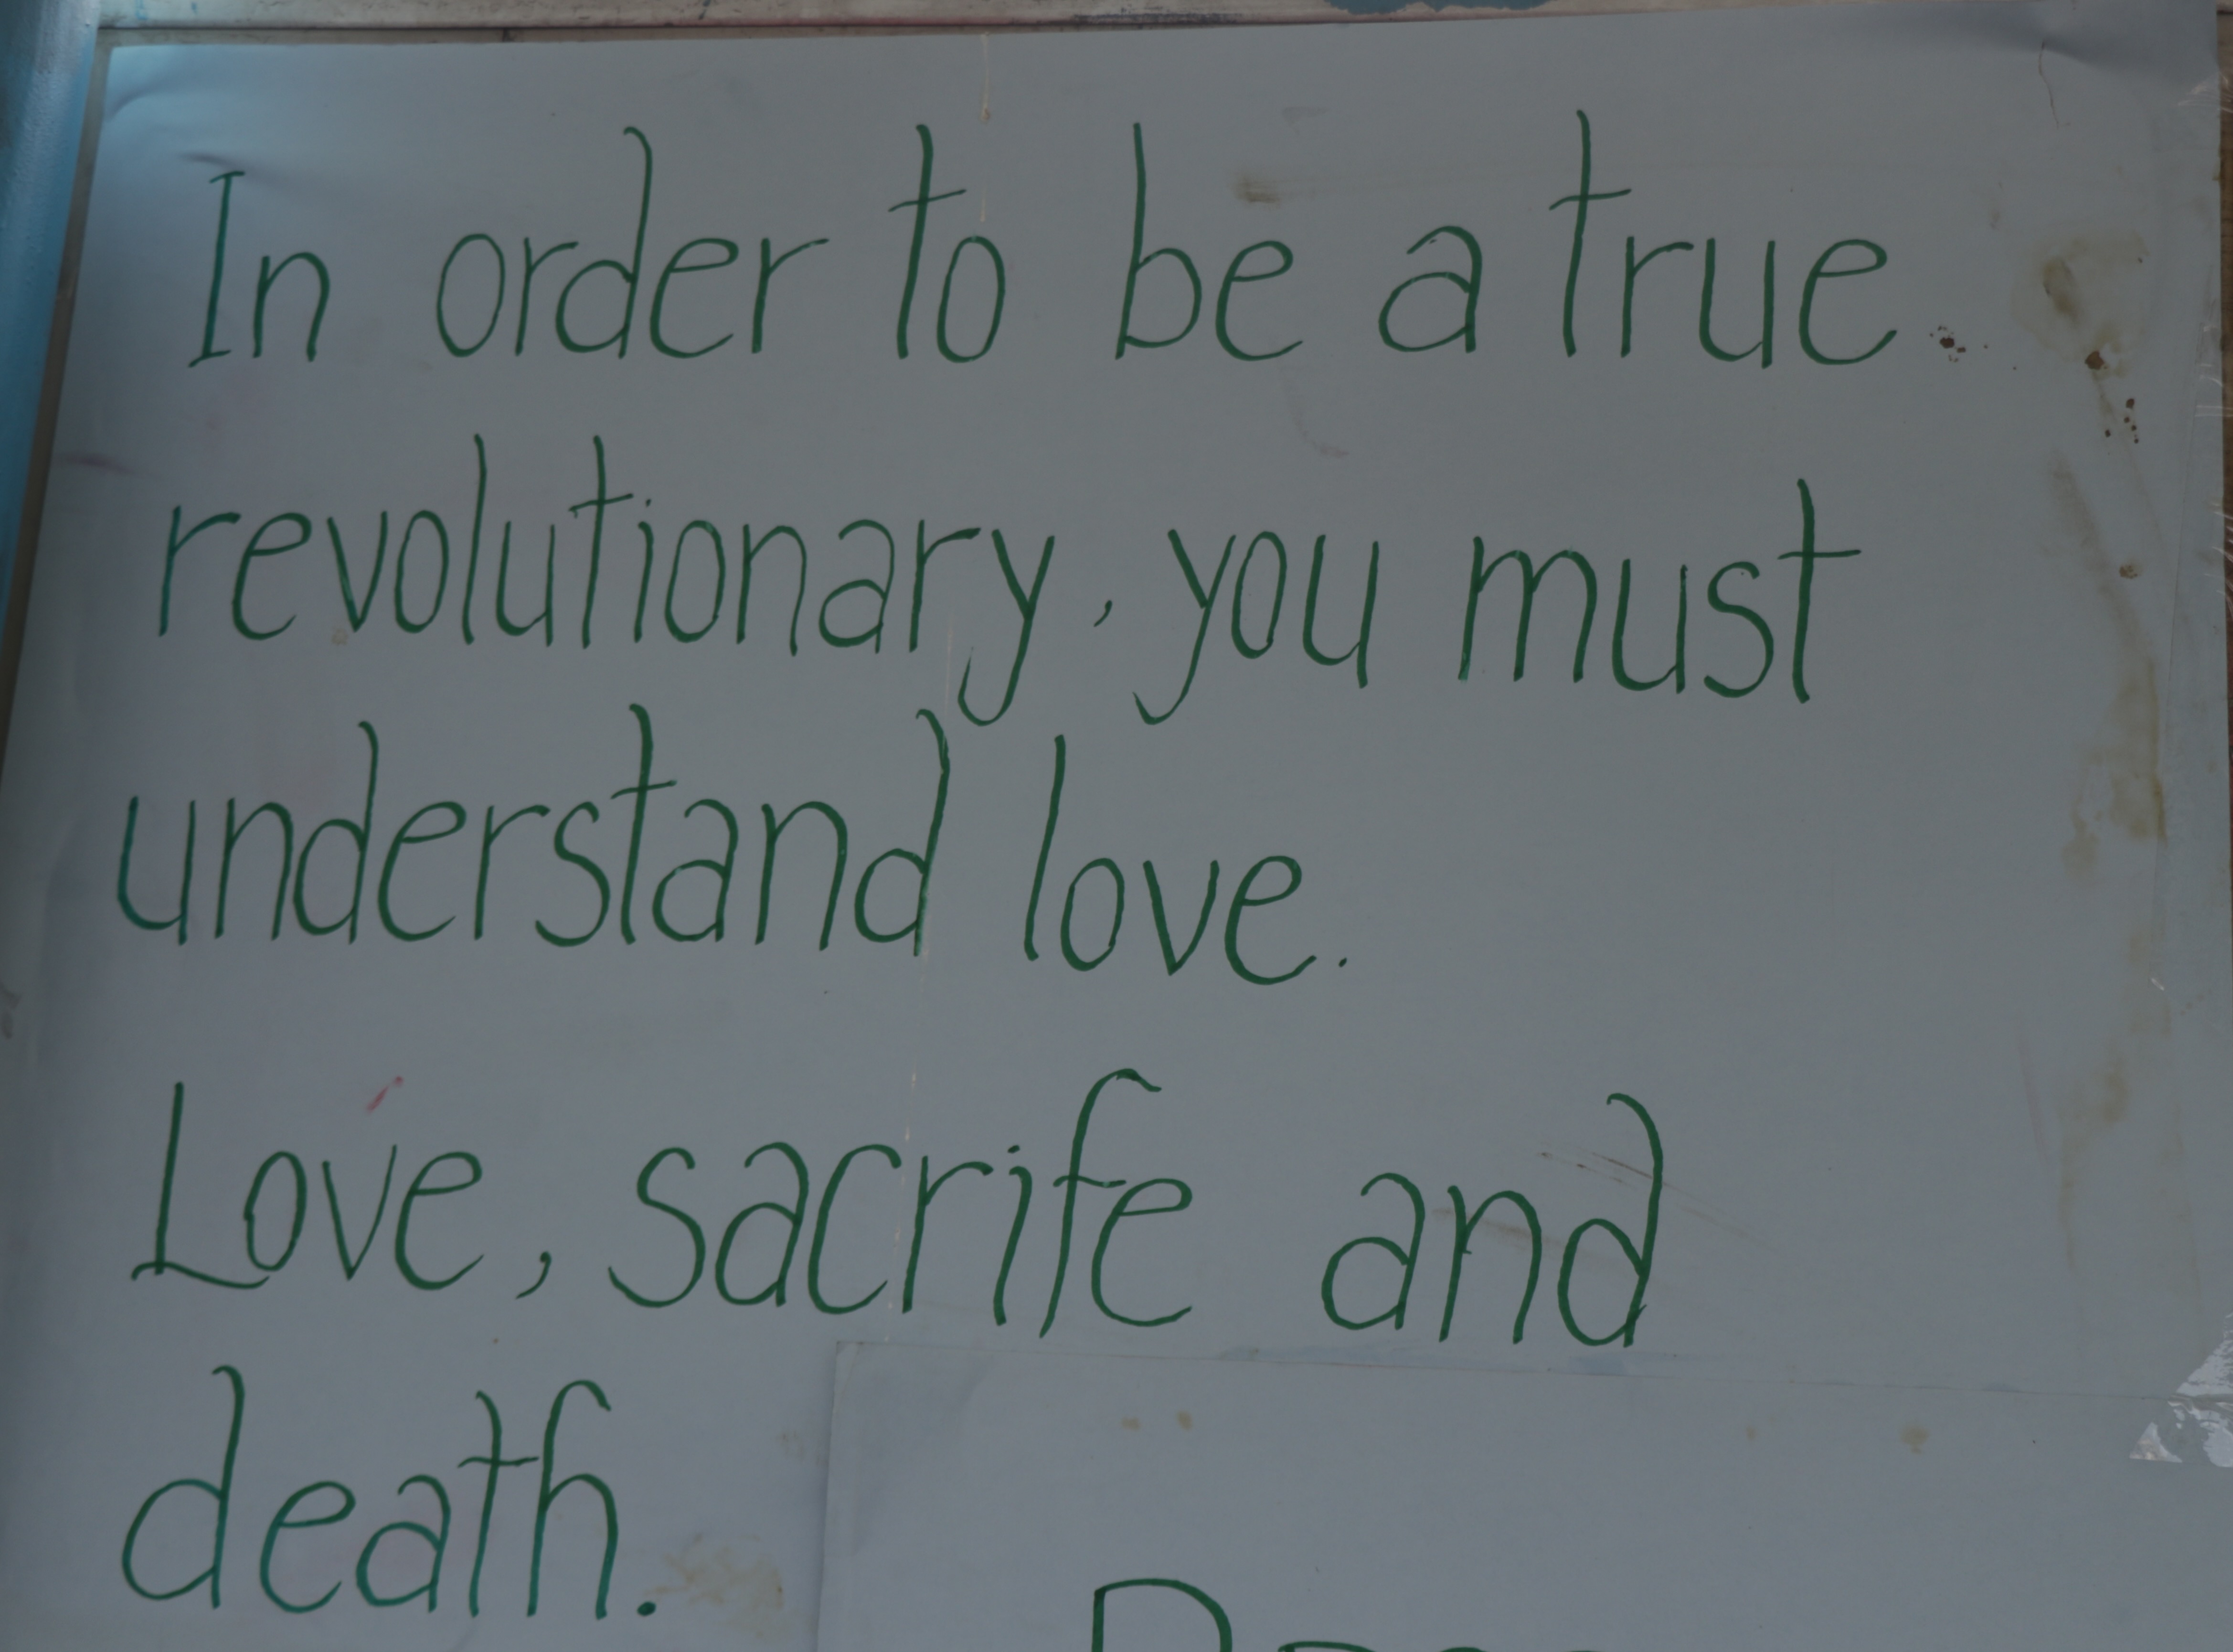 In order to be a true
revolutionary, you must
understand love.
Love, sacrife and
death.